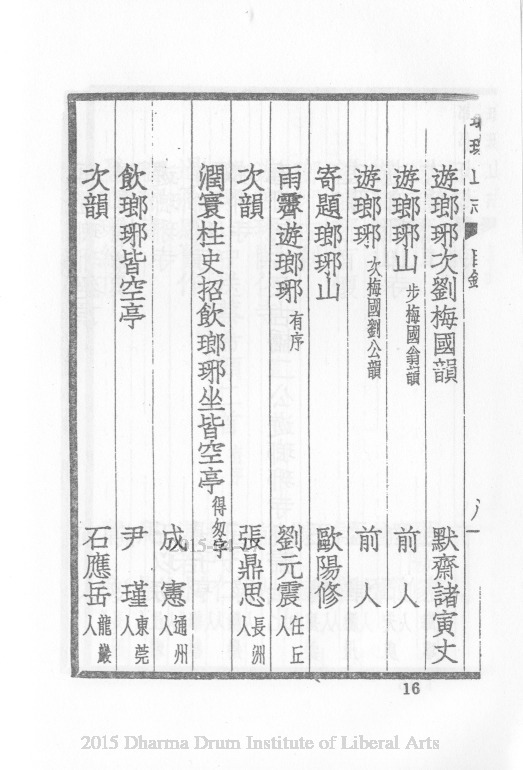 遊瑯琊次劉梅國韻 默齋諸寅丈
遊瑯琊山 步梅國翁韻 前人
遊瑯琊 次梅國劉公韻 前人
寄題瑯琊山 歐陽修
雨霽遊瑯琊 有序 劉元震 任丘人
次韻 張鼎思 長洲人
潤寰柱史招飲瑯琊坐皆空亭 得匆字
成憲 通州人
飲瑯琊皆空亭 尹瑾 東莞人
次韻 石應岳 龍巖人
16
2015 Dharma Drum Institute of Liberal Arts